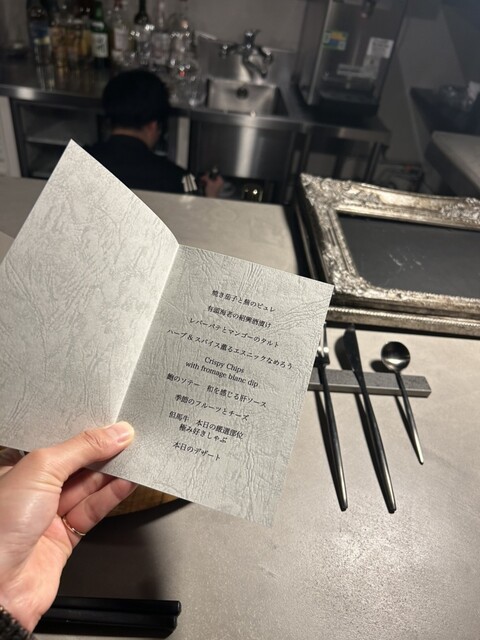 焼き茄子と鯵のピュレ
有頭海老の紹興酒漬け
レバーパテとマンゴーのタルト
ハーブ＆スパイス薫るエスニックなめろう
Crispy Chips
with fromage blanc dip
鮑のソテー　和を感じる肝ソース
季節のフルーツとチーズ
但馬牛　本日の厳選部位
極み好きしゃぶ
本日のデザート